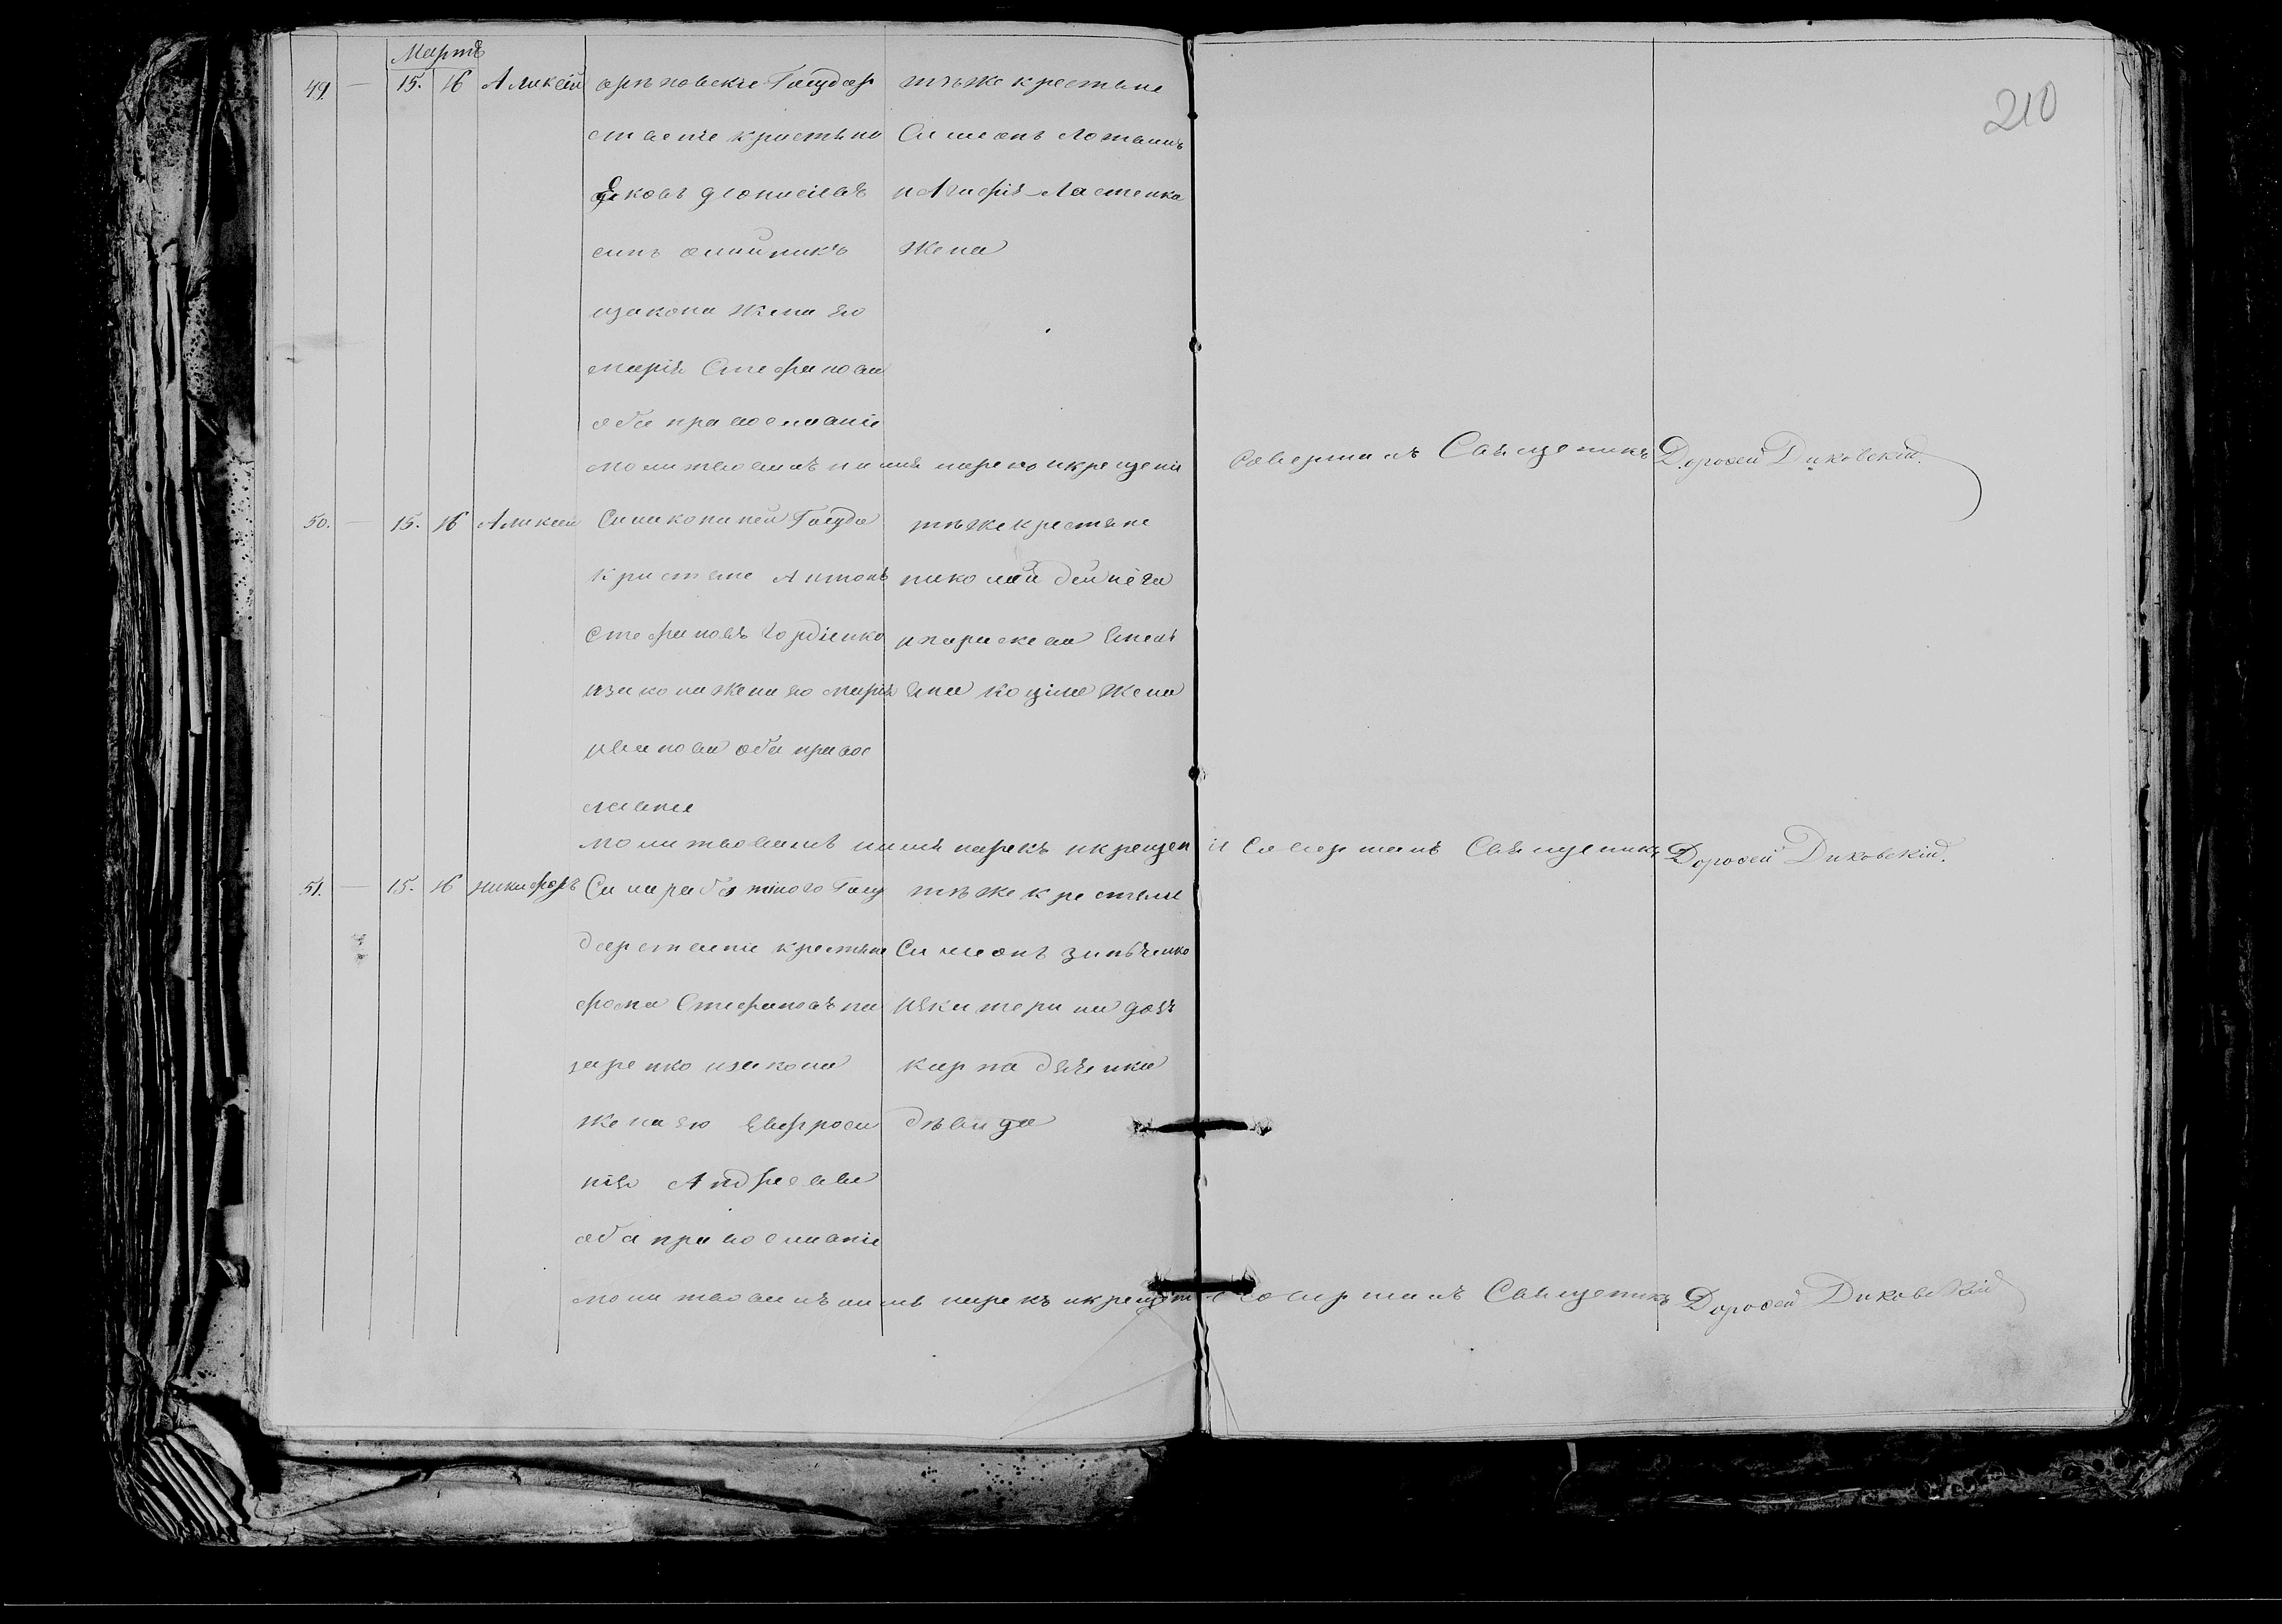 Мартъ
210
49. — 15. 16 Аликсій
орѣховскіе Государ
ствение кристьяни
Яковъ діонисіевъ
синъ олийникъ
изакона жена его
марія Стефанова
оба православніе
тѣже крестьяне
Симеонъ
и Агафія Ластенка
жена
молитвовалъ имя нареко икрещеніе совершалъ Священикъ Дорофей Диковскій.
50. — 15. 16 Аликсій
Сила Госуда
кристьяне Антонъ
Стефановъ гордіенко
изакона жена его марія
ивановна оба право
славние
тѣже крестьяне
николай дейнега
ипараскева Емель
яна коціла жена
молитвовалъ имя нарекъ икрещеніе Совершалъ Священикъ Дорофей Диковскій.
51. — 15. 16 никифоръ
Сила Госу
дарствение крестьяне
фома Стефановъ на
заренко изакона
жена его Евфроси
нія Андреева
оба православніе
тѣже крестьяне
Симеонъ зинченко
иекатерина дочь
карпа дяченка
дѣвица
молитвовалъ имя нарекъ икрещеніе совершалъ Священикъ Дорофей Диковскій